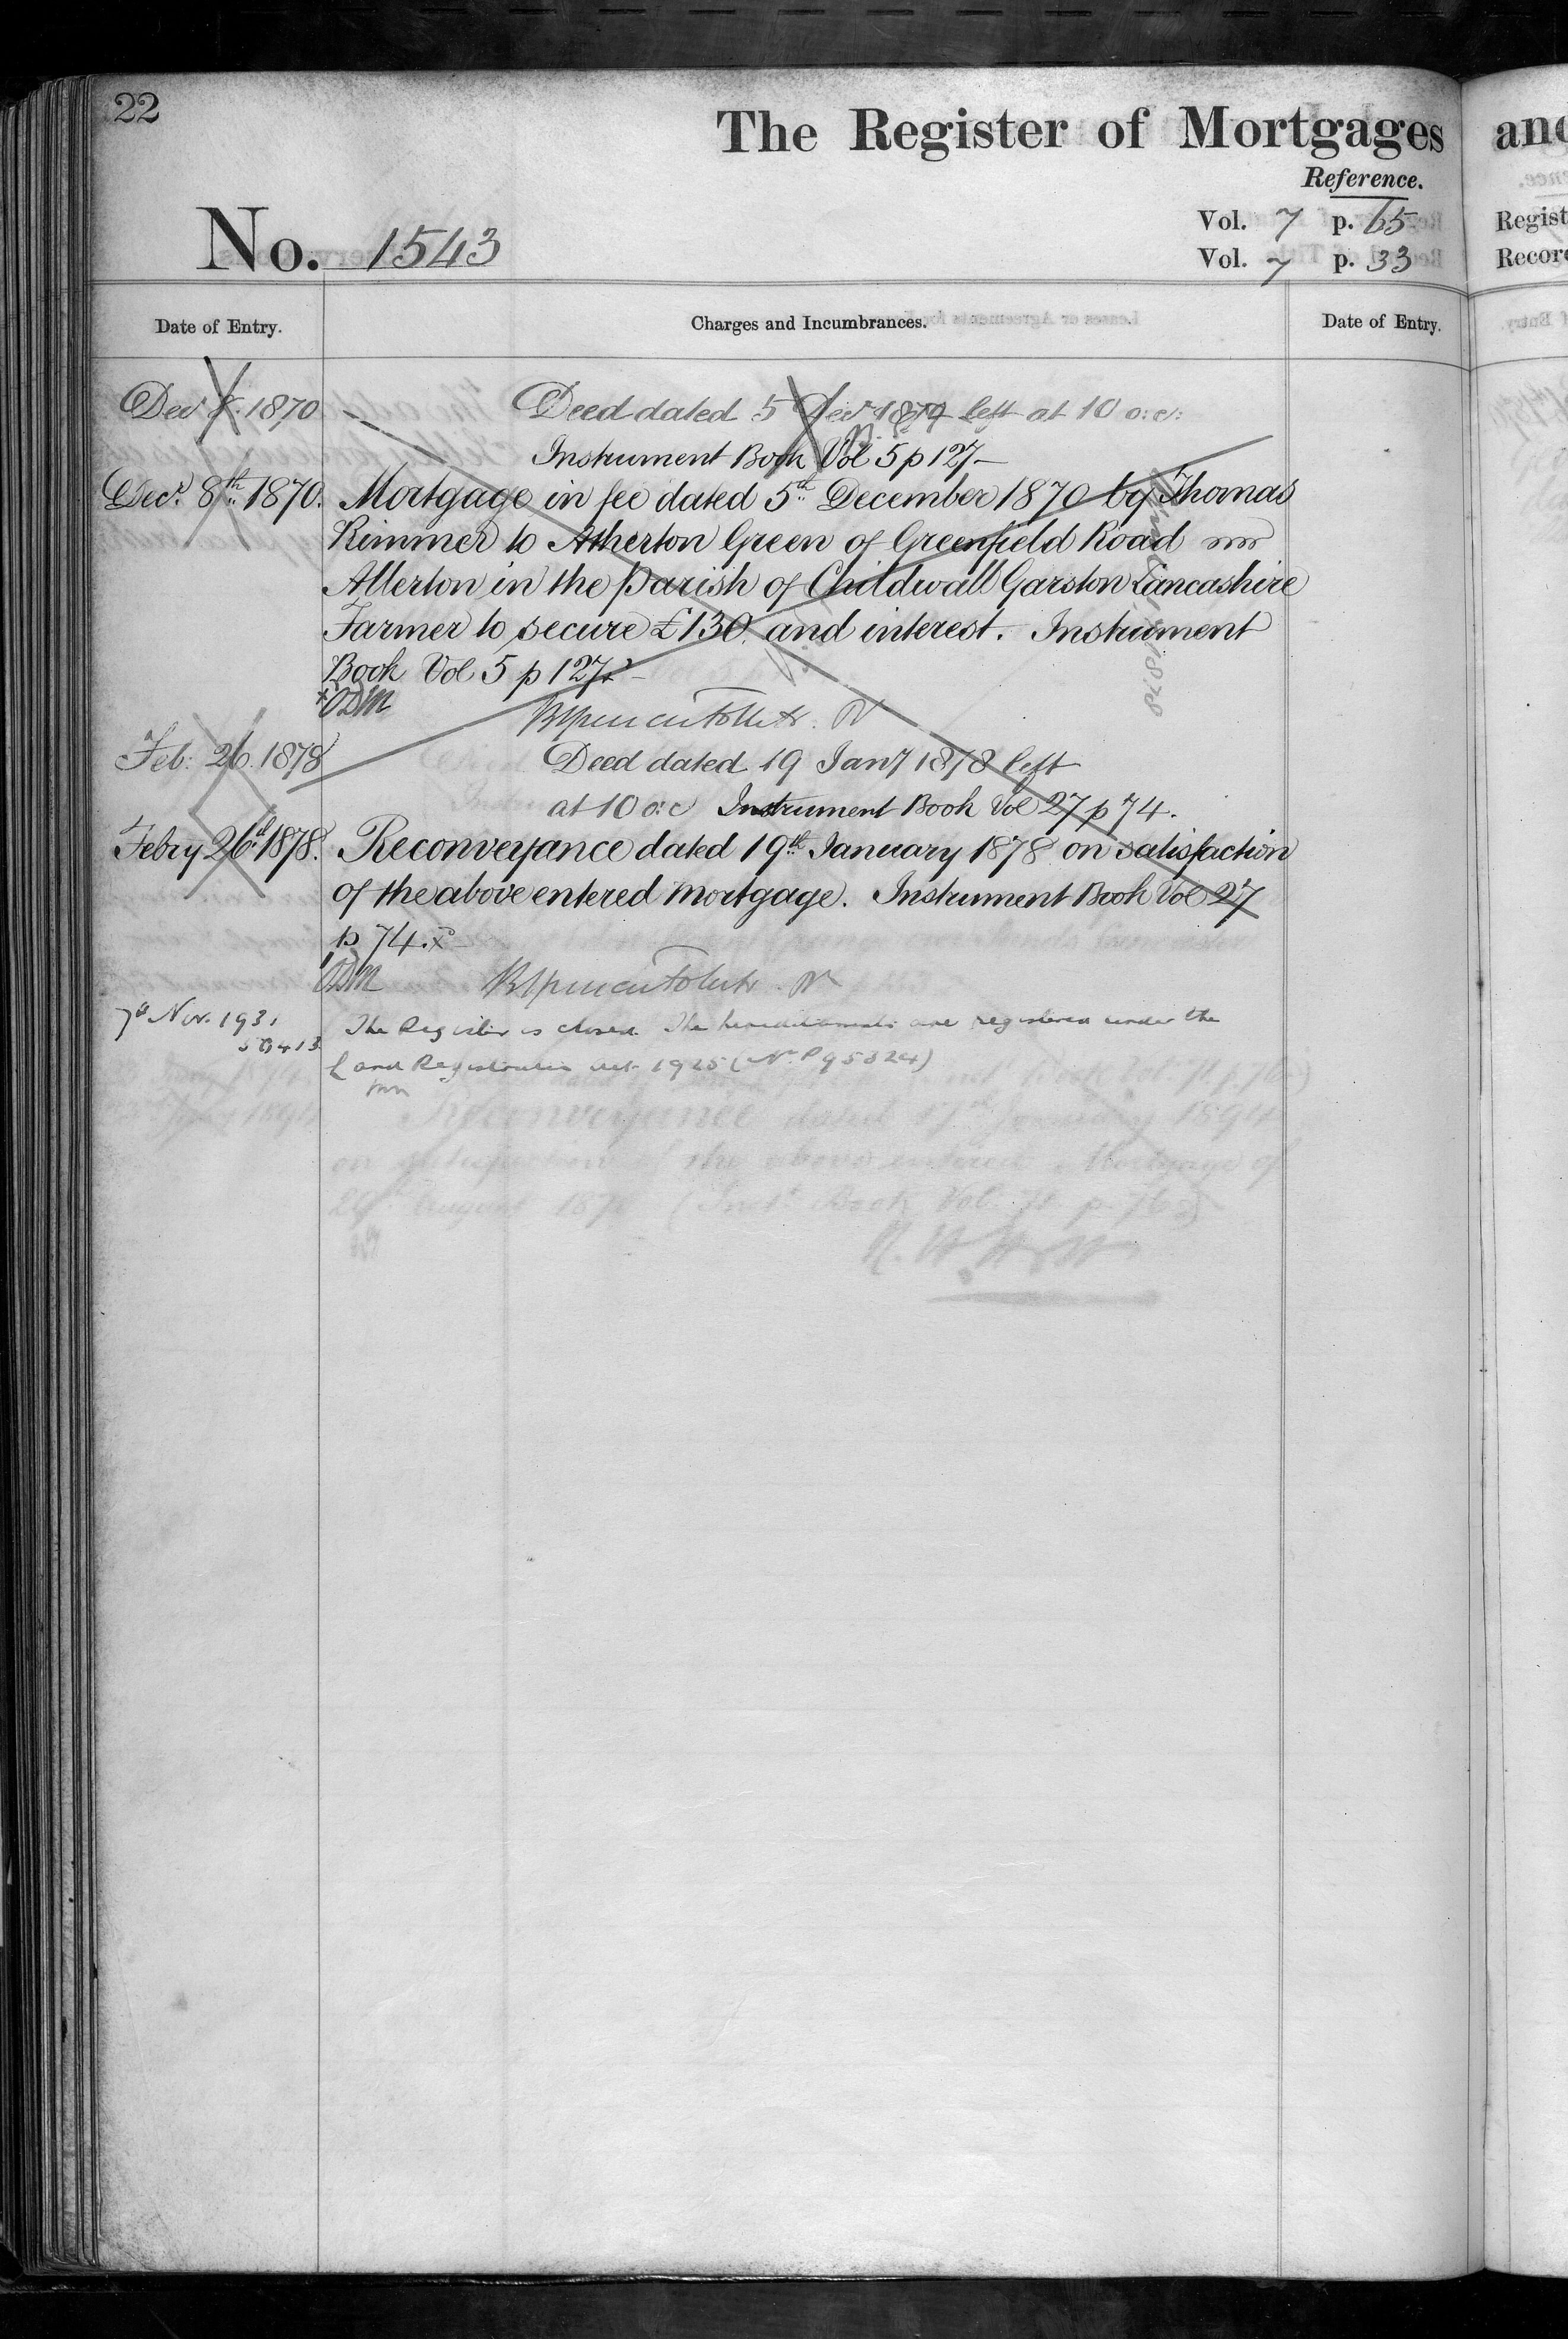 22
The Register of Mortgages
Reference.
No. 1543
Vol. 7 p. 65
Vol. 7 p. 33
Date of Entry.
Charges and Incumbrances.
Date of Entry.
Decr 8. 1870
Deed dated 5 Decr 1870 left at 10 o:c:
Instrument Book Vol 5 p 127
Decr. 8th 1870.
Mortgage in fee dated 5th December 1870 by Thomas
Rimmer to Atherton Green of Greenfield Road
Allerton in the Parish of Childwall Garston Lancashire
Farmer to secure £130 and interest. Instrument
Book Vol 5 p 127
Feb: 26. 1878
Deed dated 19 Jany 1878 left
at 10 o:c Instrument Book Vol 27 p 74.
Febry 26th 1878.
Reconveyance dated 19th January 1878 on satisfaction
of the above entered mortgage. Instrument Book Vol 27
p 74.
7th Nov. 1931
The Register is closed. The hereditaments are registered under the
Land Registration Act 1925 (No. P95324)
and
Regist
Record